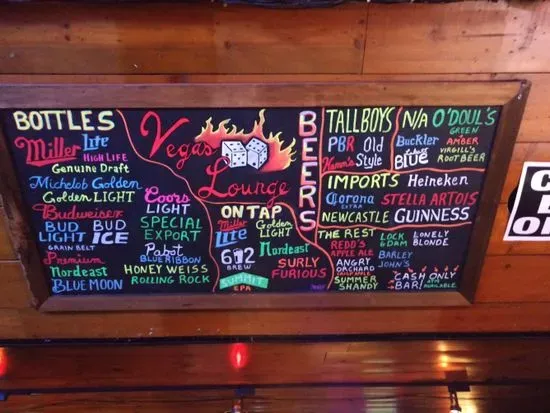 BOTTLES
Miller Lite
HIGH LIFE
Genuine Draft
Michelob Golden
Golden LIGHT
Budweiser
BUD LIGHT
BUD ICE
GRAIN BELT
Premium
Nordeast
BLUE MOON
Coors LIGHT
SPECIAL EXPORT
Pabst
BLUE RIBBON
HONEY WEISS
ROLLING ROCK
Vegas
Lounge
ON TAP
Miller LITE
Golden LIGHT
612
BREW
Nordeast
SUMMIT
EPA
SURLY
FURIOUS
BEERS
TALLBOYS
PBR
Old Style
Hamm's
N/A
O'DOUL'S
GREEN
AMBER
Buckler
BLUE
VIRGIL'S
ROOT BEER
IMPORTS
Heineken
Corona
EXTRA
STELLA ARTOIS
NEWCASTLE
GUINNESS
THE REST
REDD'S
APPLE ALE
ANGRY
ORCHARD
SUMMER
SHANDY
LOCK
& DAM
BARLEY
JOHN'S
LONELY
BLONDE
CASH ONLY
BAR!
ATM
AVAILABLE